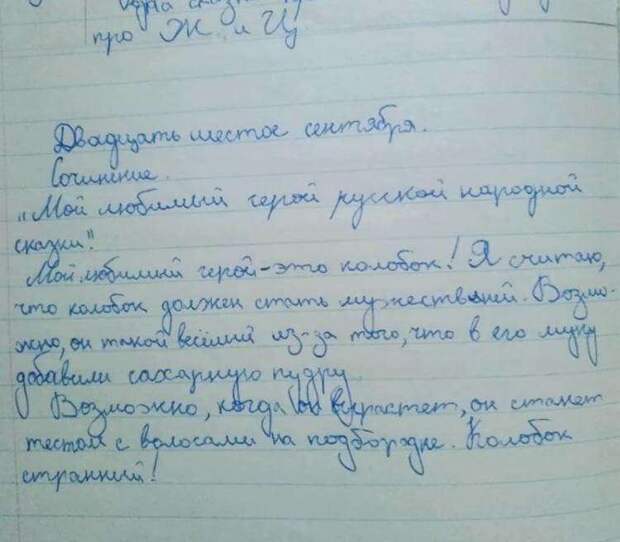 про Ж и Ц
Двадцать шестое сентября.
Сочинение.
„Мой любимый герой русской народной
сказки".
Мой любимий герой-это колобок! Я считаю,
что колобок должен стать мужествяней. Возмо-
жно, он такой весёлий из-за того, что в его муку
добавили сахарную пудру.
Возможно, когда он вырастет, он станет
тестом с волосами на подбородке. Колобок
странний!